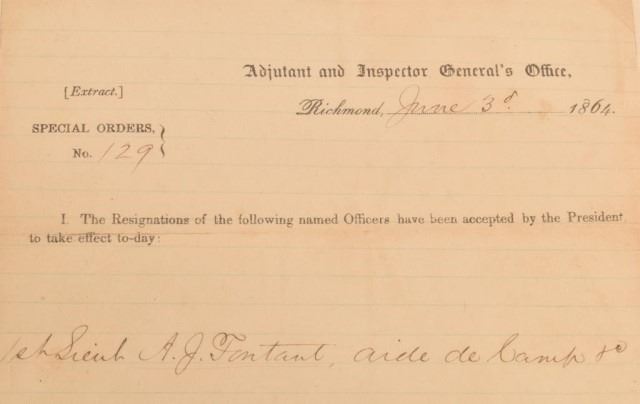 Adjutant and Inspector General's Office,
[Extract.]
Richmond, June 3d. 1864.
SPECIAL ORDERS,
No. 129
I. The Resignations of the following named Officers have been accepted by the President
to take effect to-day:
1st Lieut A. J. Fontant, aide de Camp &c